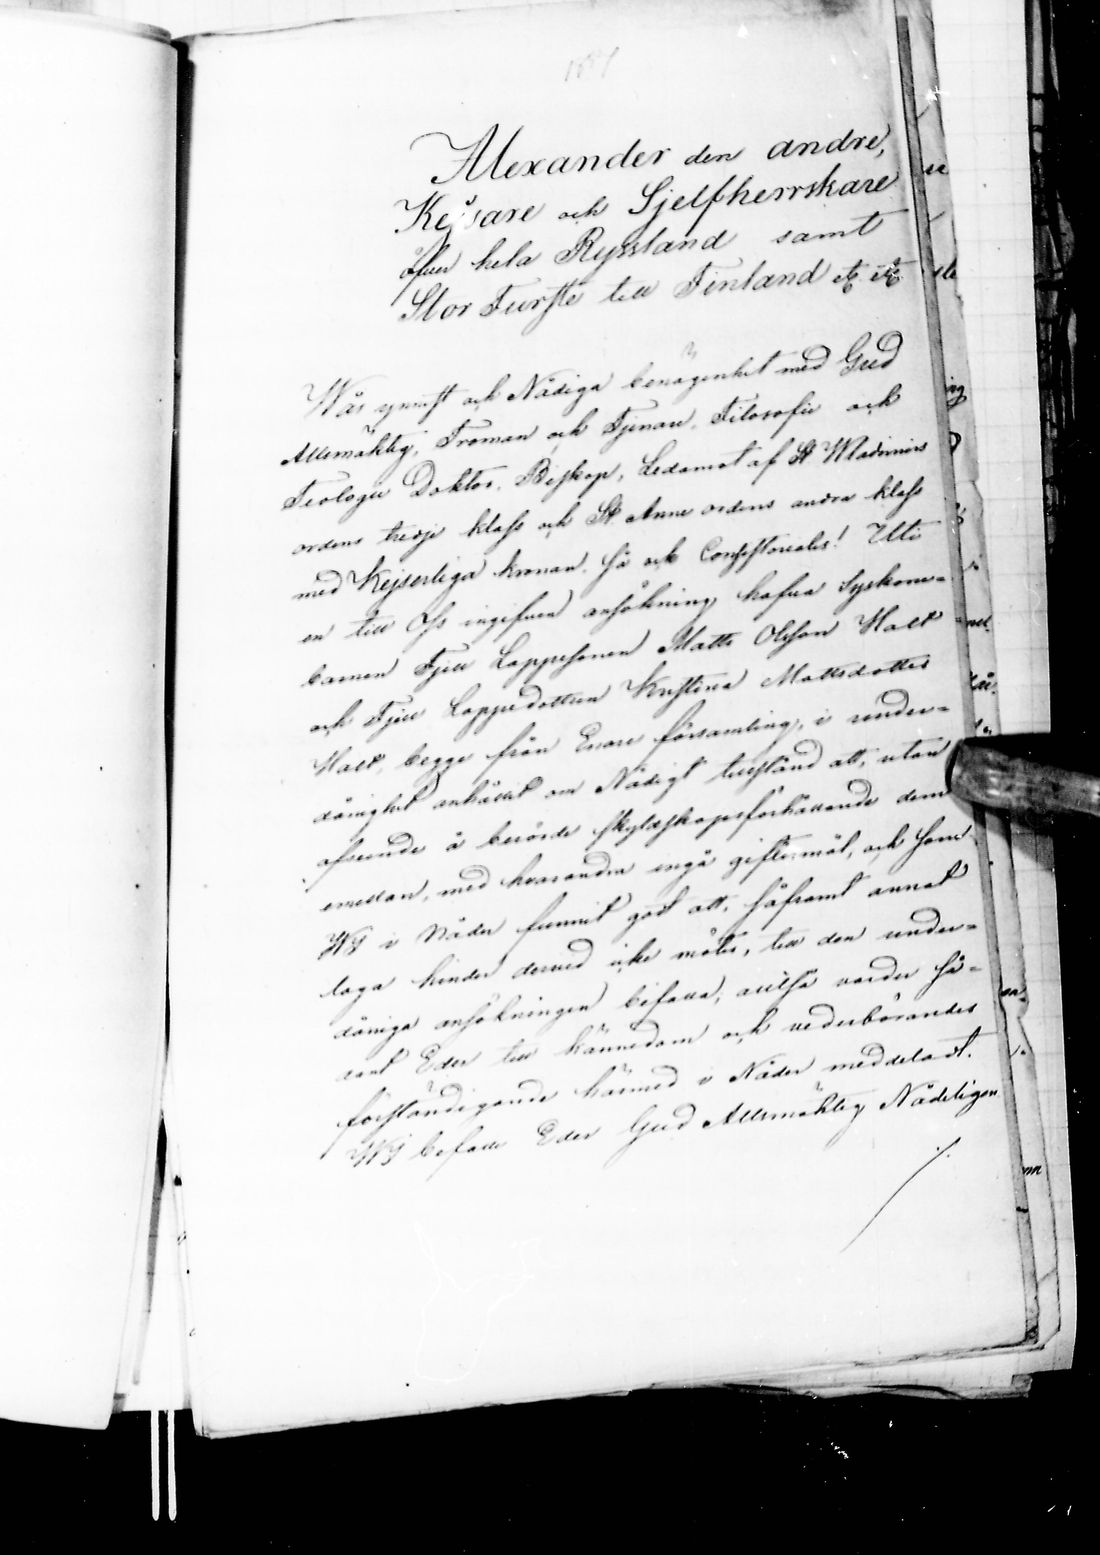 Alexander den andre,
Kejsare och Sjelfherrskare
öfver hela Ryssland samt
Stor Furste till Finland etc. etc.
Wår ynnest och Nådiga benägenhet med Gud
Allsmäktig, Troman och Tjenare, Filosofie och
Teologie Doktor, Biskop, Ledamot af St Wladimirs
ordens tredje klass och St Anne ordens andra klass
med Kejserliga kronan, så ock Consistoriales! Uti
en till Oss ingifven ansökning hafva Syskone-
barnen Fjell Lappesonen Matts Olsson Halt
och Fjell Lappedottren Kristina Mattsdotter
Halt, begge från Enare församling, i under-
dånighet anhållit om Nådigt tillstånd att, utan
afseende å berörde skyldskapsförhållande dem
emellan, med hvarandra ingå giftermål, och som
Wij i Nåder funnit godt att, såframt annat
laga hinder dermed icke möter, till den under-
dåniga ansökningen bifalla; alltså varder så-
dant Eder till kännedom och vederbörandes
förständigande härmed i Nåder meddeladt.
Wij befalle Eder Gud Allsmäktig Nådeligen
./.